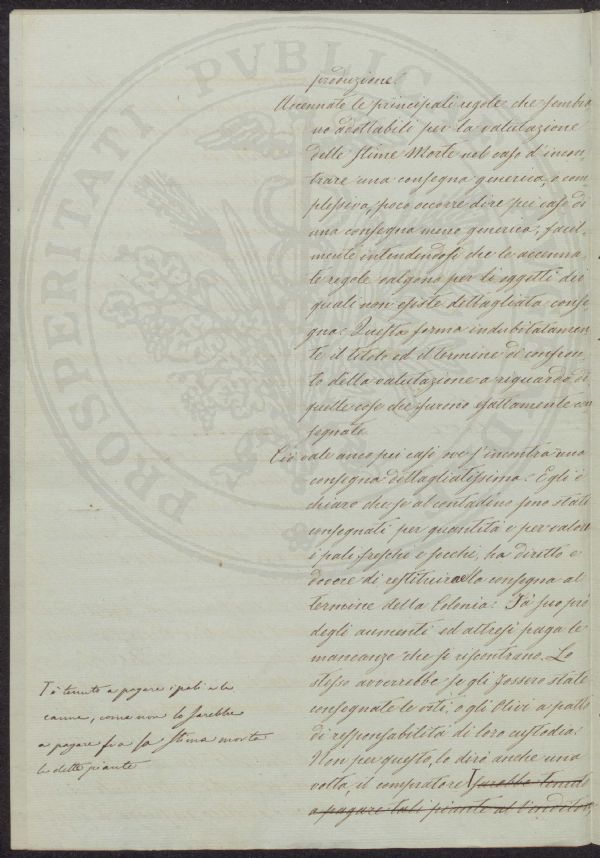 produzione.
Accennate le principali regole che sembra
no adottabili per la valutazione
delle stime Morte nel caso d'incon,
trare una consegna generica, o com
plessiva, poco occorre dire pei casi di
una consegna meno generica; facil
mente intendendosi che le accenna
te regole valgono per li oggetti dei
quali non esiste dettagliata conse
gna: Questa forma indubitatamen
te il titolo ed il termine di confron
to della valutazione a riguardo di
quelle cose che furono esattamente con
segnate
Ciò vale anco pei casi ove s'incontra una
consegna dettagliatissima: Egli è
chiaro che se al contadino sono stati
consegnati per quantità e per valore
i pali freschi e secchi, ha diritto e
dovere di restituire la consegna al
termine della Colonia: Fà suo prò
degli aumenti ed altresì paga le
mancanze che si riscontrano. Lo
stesso avverrebbe se gli fossero state
consegnate le viti, o gli Olivi a patto
di responsabilità di loro custodia:
Non per questo, lo dirò anche una
volta, il compratore sarebbe tenuto
a pagare tali piante al Venditore,
è tenuto a pagare i pali e le
canne, come non lo sarebbe
a pagare fra la stima morta
le dette piante
PROSPERITATI PUBLICAE